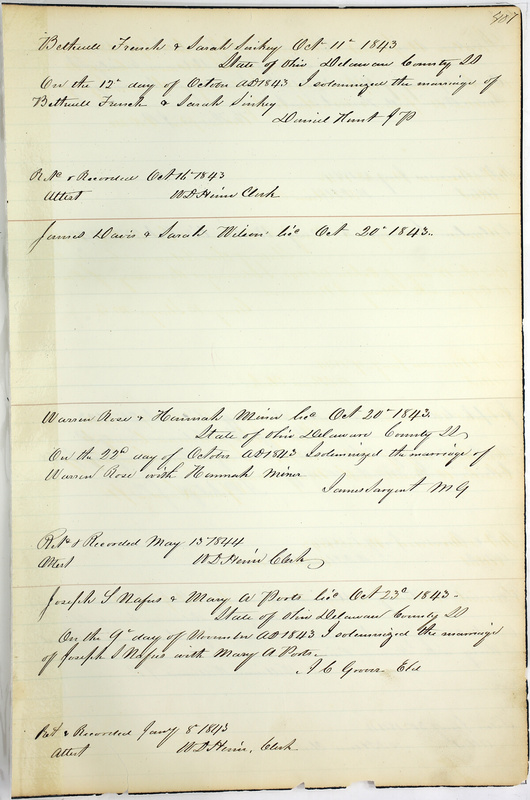 407
Bethuell French & Sarah Sinkey Oct 11th 1843
State of Ohio Delaware County SS
On the 12th day of October AD 1843 I solemnized the marriage of
Bethuell French & Sarah Sinkey
Daniel Hunt J P
Recd & Recorded Oct 16th 1843
Attest W D Heim Clerk
James Davis & Sarah Wilson Lic Oct 20th 1843
Warren Rose & Hannah Minor Lic Oct 20th 1843
State of Ohio Delaware County SS
On the 22d day of October AD 1843 I solemnized the marriage of
Warren Rose with Hannah Minor
James Sargent M G
Recd & Recorded May 13th 1844
Attest W D Heim Clerk
Joseph S Nafus & Mary A Potts Lic Oct 23d 1843
State of Ohio Delaware County SS
On the 9th day of November AD 1843 I solemnized the marriage
of Joseph S Nafus with Mary A Potts
J C Grover Eld
Recd & Recorded Jany 8th 1843
Attest W D Heim, Clerk